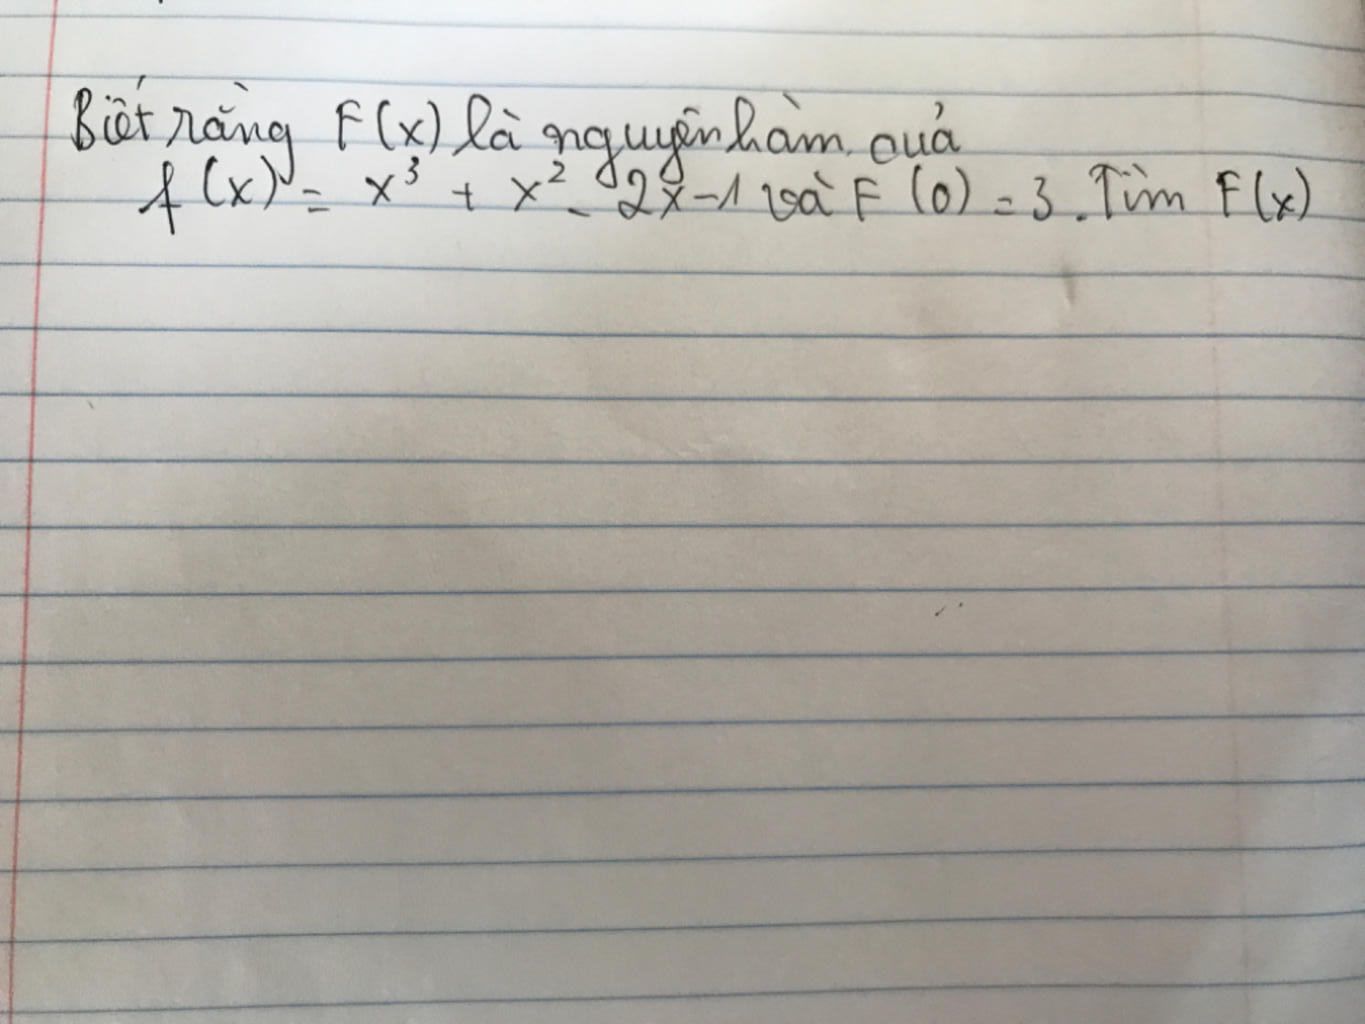 Biết rằng F(x) là nguyên hàm của
f(x) = x³ + x² - 2x - 1 và F(0) = 3. Tìm F(x)